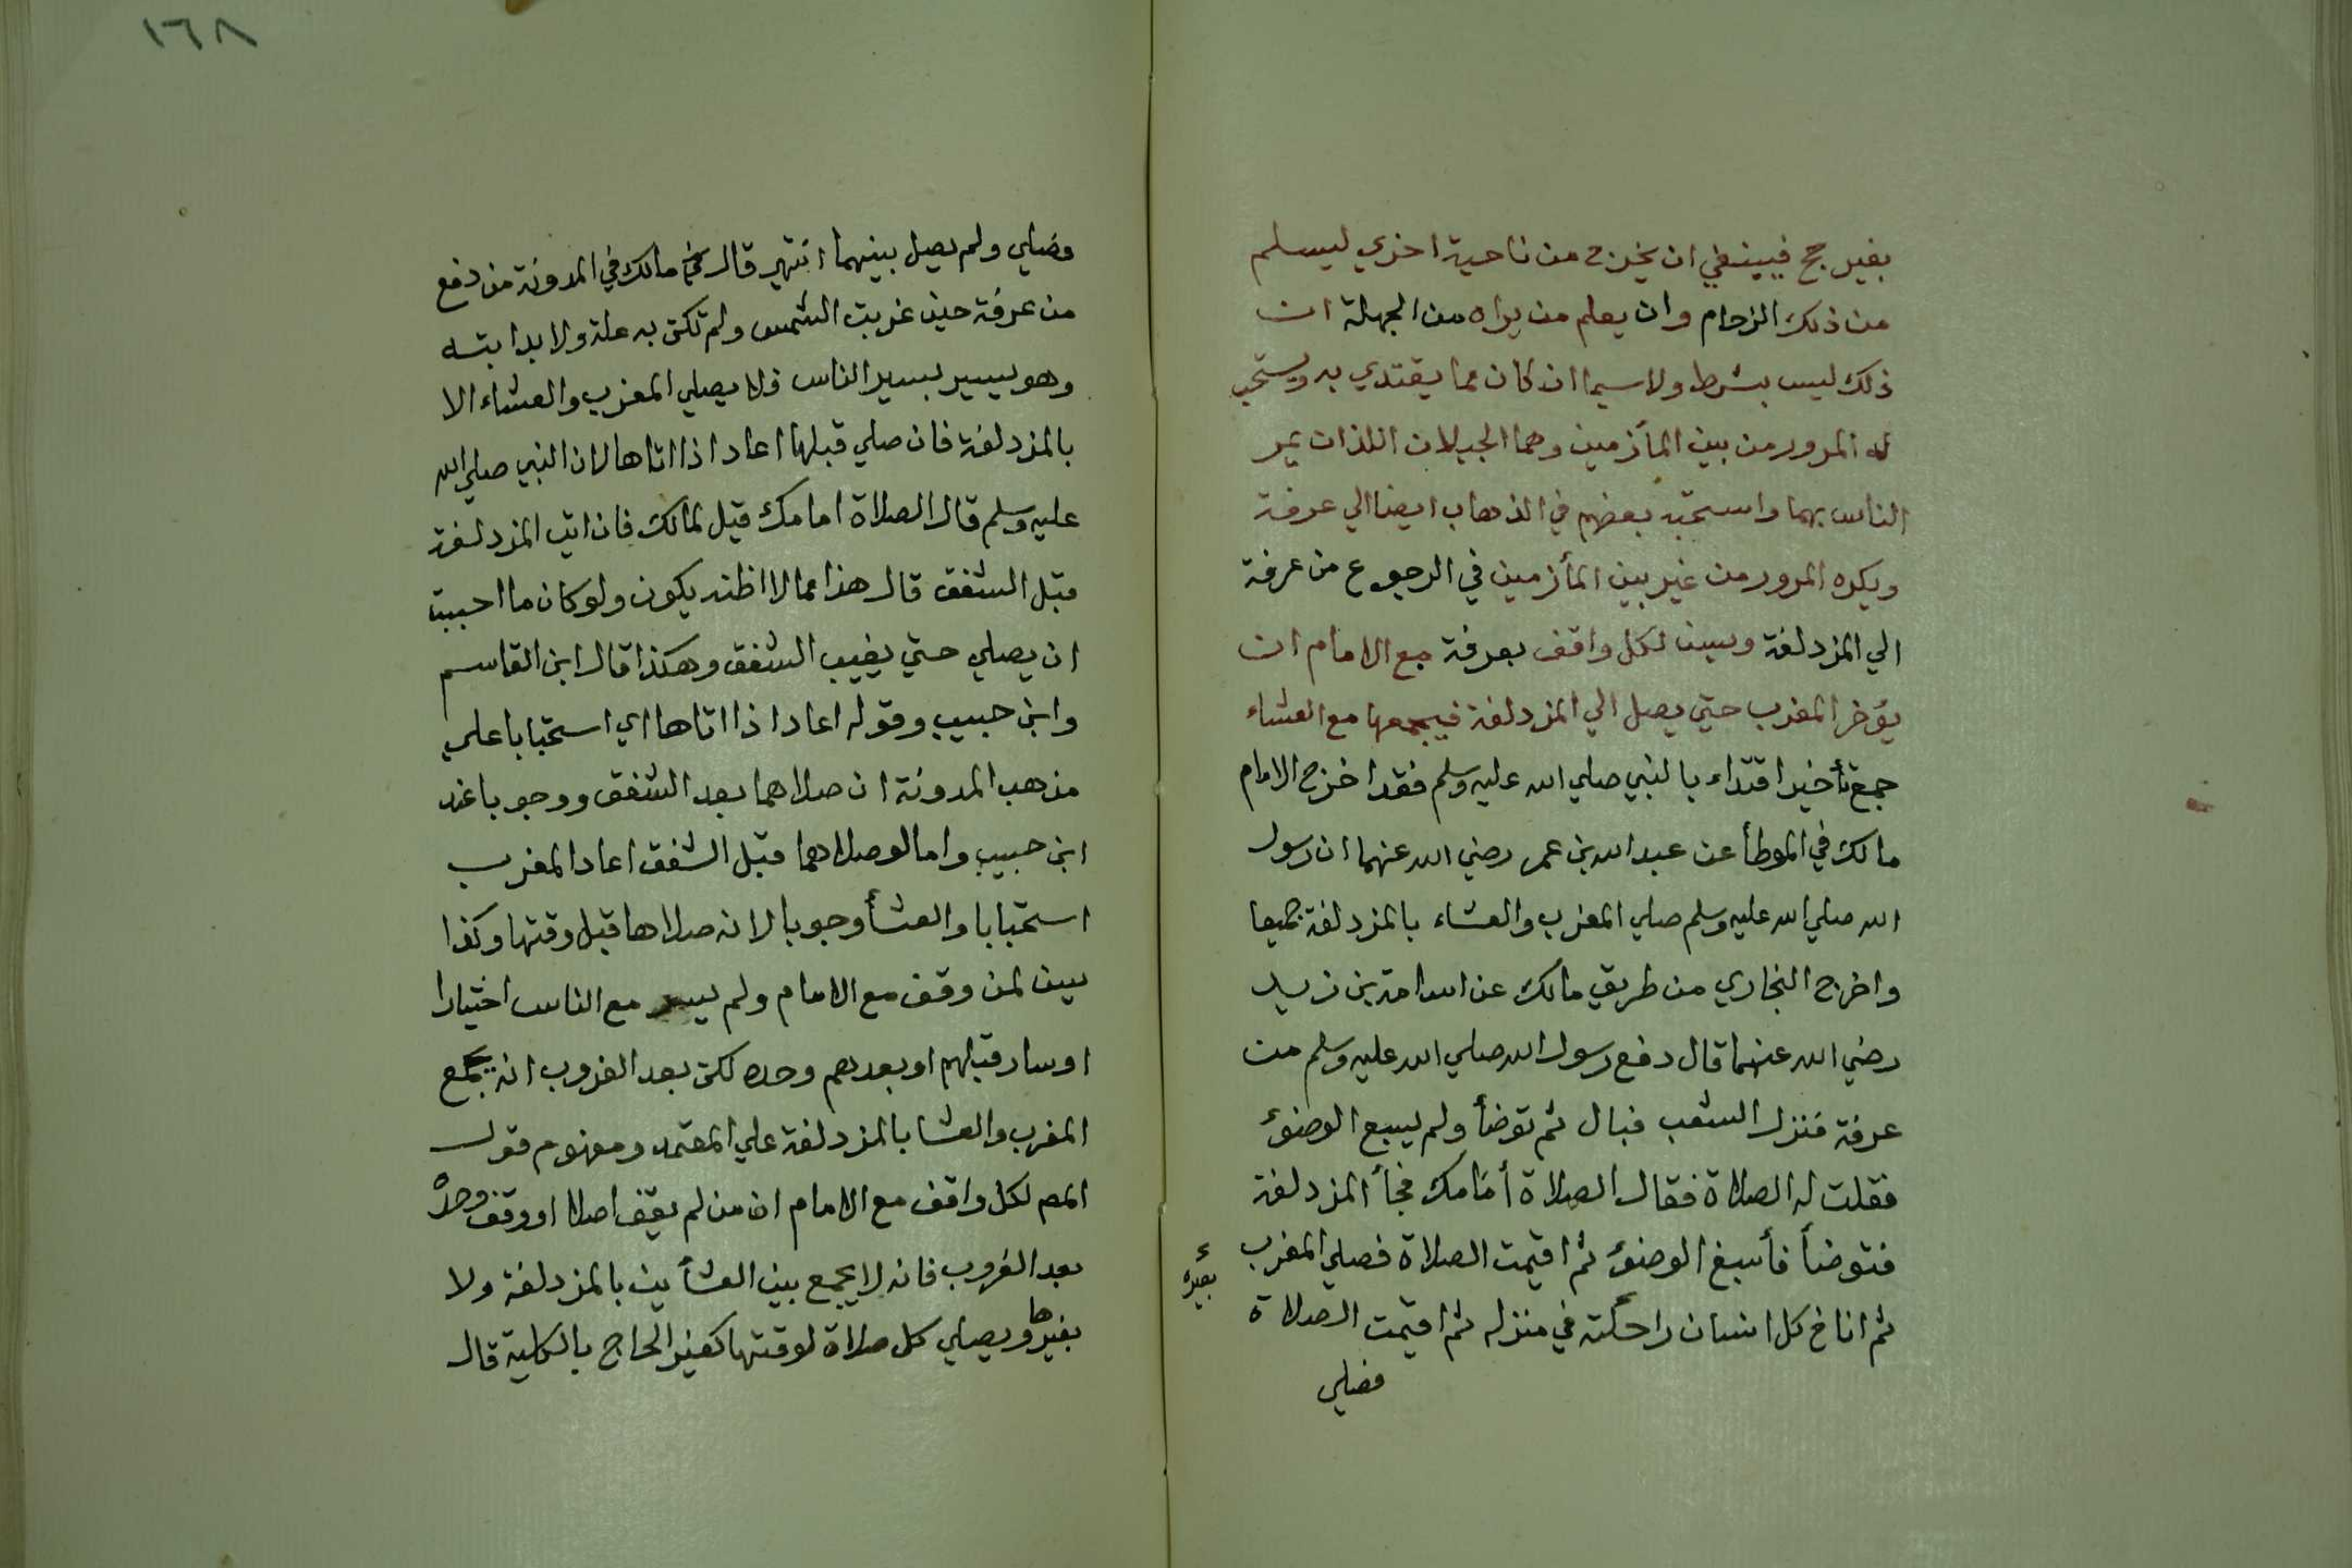 بغير حج فينبغي ان يخرج من ناحية اخري ليسلم
من ذلك الزحام وان يعلم من يراه من الجهلة ان
ذلك ليس بشرط ولاسيما ان كان مما يقتدي به ويستحب
له المرور من بين المأزمين وهما الجبلان اللذان يمر
الناس بهما واستحبه بعضهم في الذهاب ايضا الي عرفة
ويكره المرور من غير بين المأزمين في الرجوع من عرفة
الي المزدلفة ويسن لكل واقف بعرفة مع الامام ان
يؤخر المغرب حتي يصل الي المزدلفة فيجمعها مع العشاء
جمع تأخير اقتداء بالنبي صلي الله عليه وسلم فقد اخرج الامام
مالك في الموطأ عن عبد الله بن عمر رضي الله عنهما ان رسول
الله صلي الله عليه وسلم صلي المغرب والعشاء بالمزدلفة جميعا
واخرج البخاري من طريق مالك عن اسامة بن زيد
رضي الله عنهما قال دفع رسول الله صلي الله عليه وسلم من
عرفة فنزل الشعب فبال ثم توضأ ولم يسبع الوضوء
فقلت له الصلاة فقال الصلاة أمامك فجأ المزدلفة
فتوضأ فأسبغ الوضوء ثم اقيمت الصلاة فصلي المغرب
ثم اناخ كل انسان راحلته في منزله ثم اقيمت الصلاة
بعيره
فصلي
١٦٨
فصلي ولم يصل بينهما انتهي قال مالك في المدونة من دفع
من عرفة حين غربت الشمس ولم تكن به علة ولا بدابته
وهو يسير بسير الناس فلا يصلي المغرب والعشاء الا
بالمزدلفة فان صلي قبلها اعاد اذا اتاها لان النبي صلي الله
عليه وسلم قال الصلاة امامك قيل لمالك فان اتي المزدلفة
قبل الشفق قال هذا مما لا اظنه يكون ولو كان ما احببت
ان يصلي حتي يغيب الشفق وهكذا قال ابن القاسم
وابن حبيب وقوله اعاد اذا اتاها اي استحبابا علي
مذهب المدونة ان صلاهما بعد الشفق ووجوبا عند
ابن حبيب واما لو صلاهما قبل الشفق اعاد المغرب
استحبابا والعشأ وجوبا لانه صلاها قبل وقتها وكذا
يسن لمن وقف مع الامام ولم يسر مع الناس اختيارا
او سار قبلهم او بعدهم وحده لكن بعد الغروب انه يجمع
المغرب والعشا بالمزدلفة علي المعتمد ومفهوم قول
المص لكل واقف مع الامام ان من لم يقف اصلا او وقف وحده
بعد الغروب فانه لا يجمع بين العشأين بالمزدلفة ولا
بغيرها ويصلي كل صلاة لوقتها كغير الحاج بالكلية قال